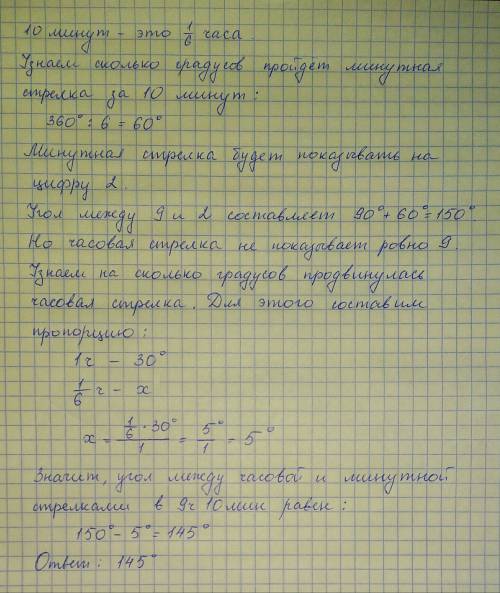 10 минут - это 1/6 часа.
Узнаем сколько градусов пройдёт минутная
стрелка за 10 минут:
360° : 6 = 60°
Минутная стрелка будет показывать на
цифру 2.
Угол между 9 и 2 составляет 90° + 60° = 150°.
Но часовая стрелка не показывает ровно 9.
Узнаем на сколько градусов продвинулась
часовая стрелка. Для этого составим
пропорцию:
1ч - 30°
1/6 ч - x
x = (1/6 · 30°)/1 = 5°/1 = 5°
Значит, угол между часовой и минутной
стрелками в 9ч 10мин равен:
150° - 5° = 145°
Ответ: 145°